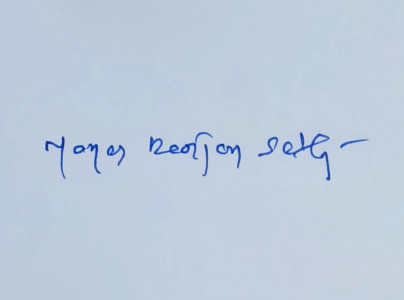 Manas Ranjan Sethy